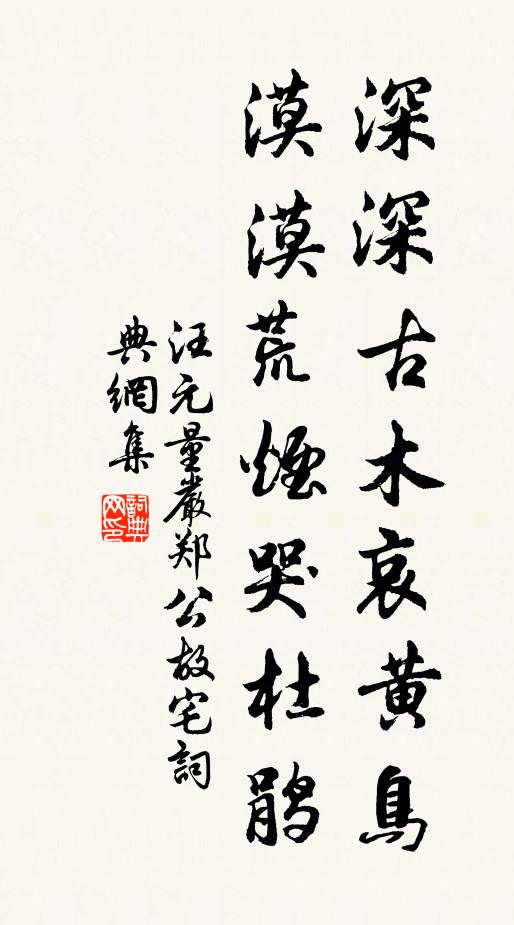 深深古木哀黄鳥
漠漠荒煙哭杜鹃
汪元量嚴郑公故宅詞
典網集
詞典網印